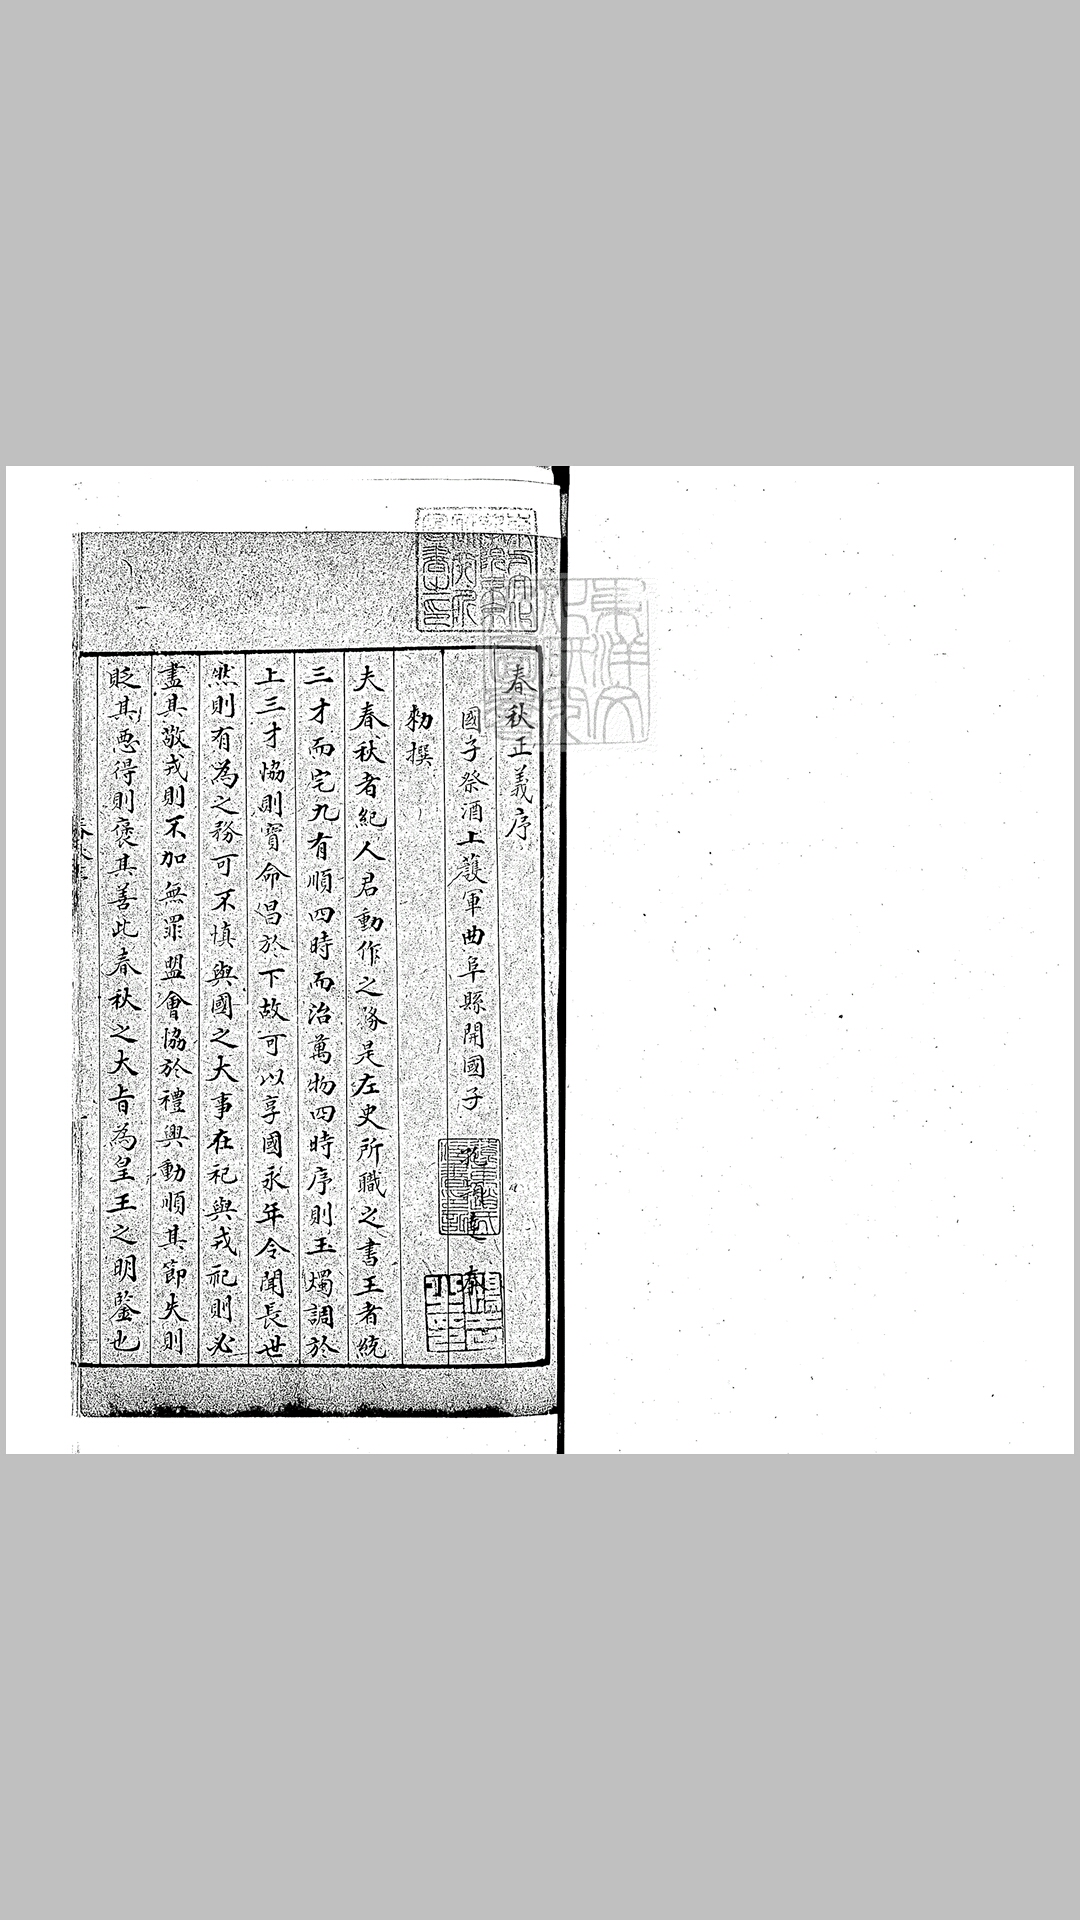 春秋正義序
國子祭酒上護軍曲阜縣開國子
勑撰
夫春秋者紀人君動作之務是左史所職之書王者統
三才而宅九有順四時而治萬物四時序則玉燭調於
上三才協則寳命昌於下故可以享國永年令聞長世
然則有為之務可不慎與國之大事在祀與戎祀則必
盡其敬戎則不加無罪盟會協於禮興動順其節失則
貶其惡得則褒其善此春秋之大旨為皇王之明鑒也
東洋文化研究